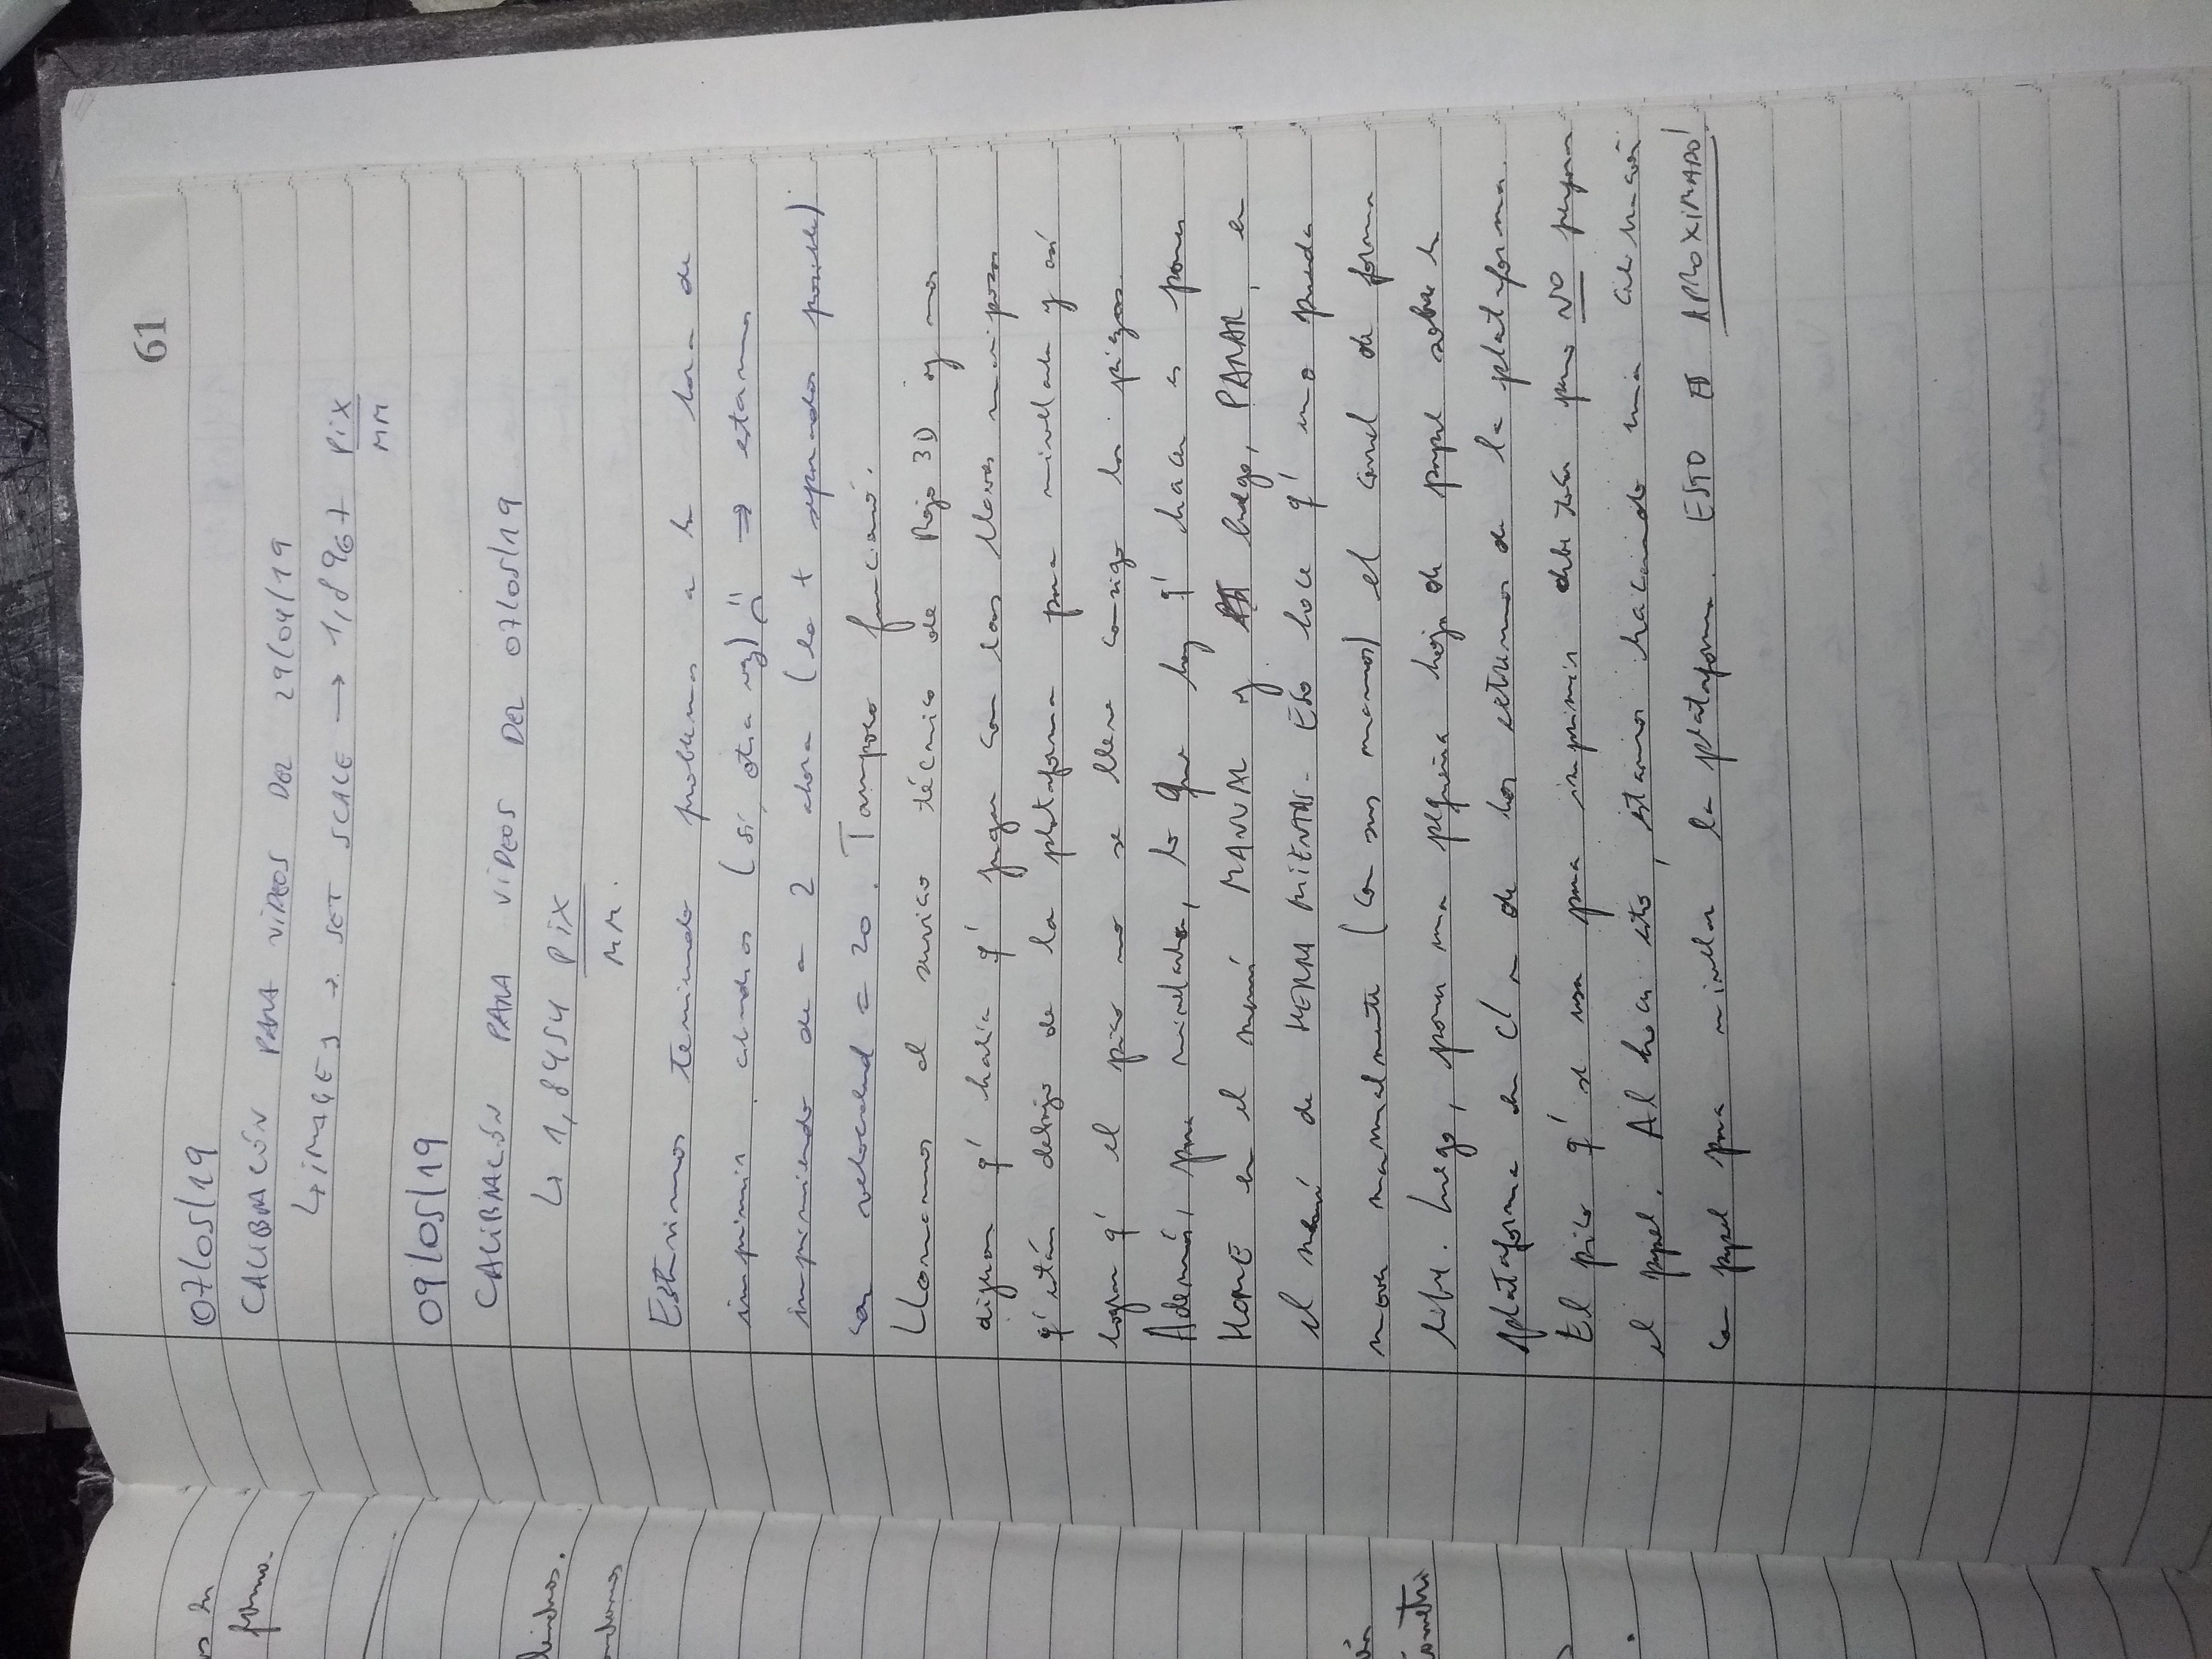 61
07/05/19
CALIBRACIÓN PARA VIDEOS DEL 29/04/19
↳ IMAGEJ → SET SCALE → 1,8967 PIX
MM
09/05/19
CALIBRACIÓN PARA VIDEOS DEL 07/05/19
↳ 1,8454 PIX
MM.
Estuvimos teniendo problemas a la hora de
imprimir cilindros (sí, otra vez) ⇒ estamos
imprimiendo de a 2 ahora (lo + separados posible)
con velocidad = 20. Tampoco funcionó.
Llamamos al servicio técnico de 3D y nos
dijeron q' había q' jugar con las llaves mariposas
q' están debajo de la plataforma para nivelarla y así
lograr q' el pico no se lleve consigo las piezas.
Además, para nivelarla, lo que hay q' hacer es poner
HOME en el menú MANUAL y luego, PARAR, en
el menú de HERRAMIENTAS. Eso hace q' uno pueda
mover manualmente (con sus manos) el carrel de forma
libre. Luego, poner una pequeña hoja de papel sobre la
plataforma en c/u de los extremos de la plataforma.
El pico q' se usa para imprimir debe tocar pero NO perforar
el papel. Al hacer esto, estamos haciendo una calibración
con papel para nivelar la plataforma. ESTO ES APROXIMADO!
os la
forma.
lindros.
ción
ometri